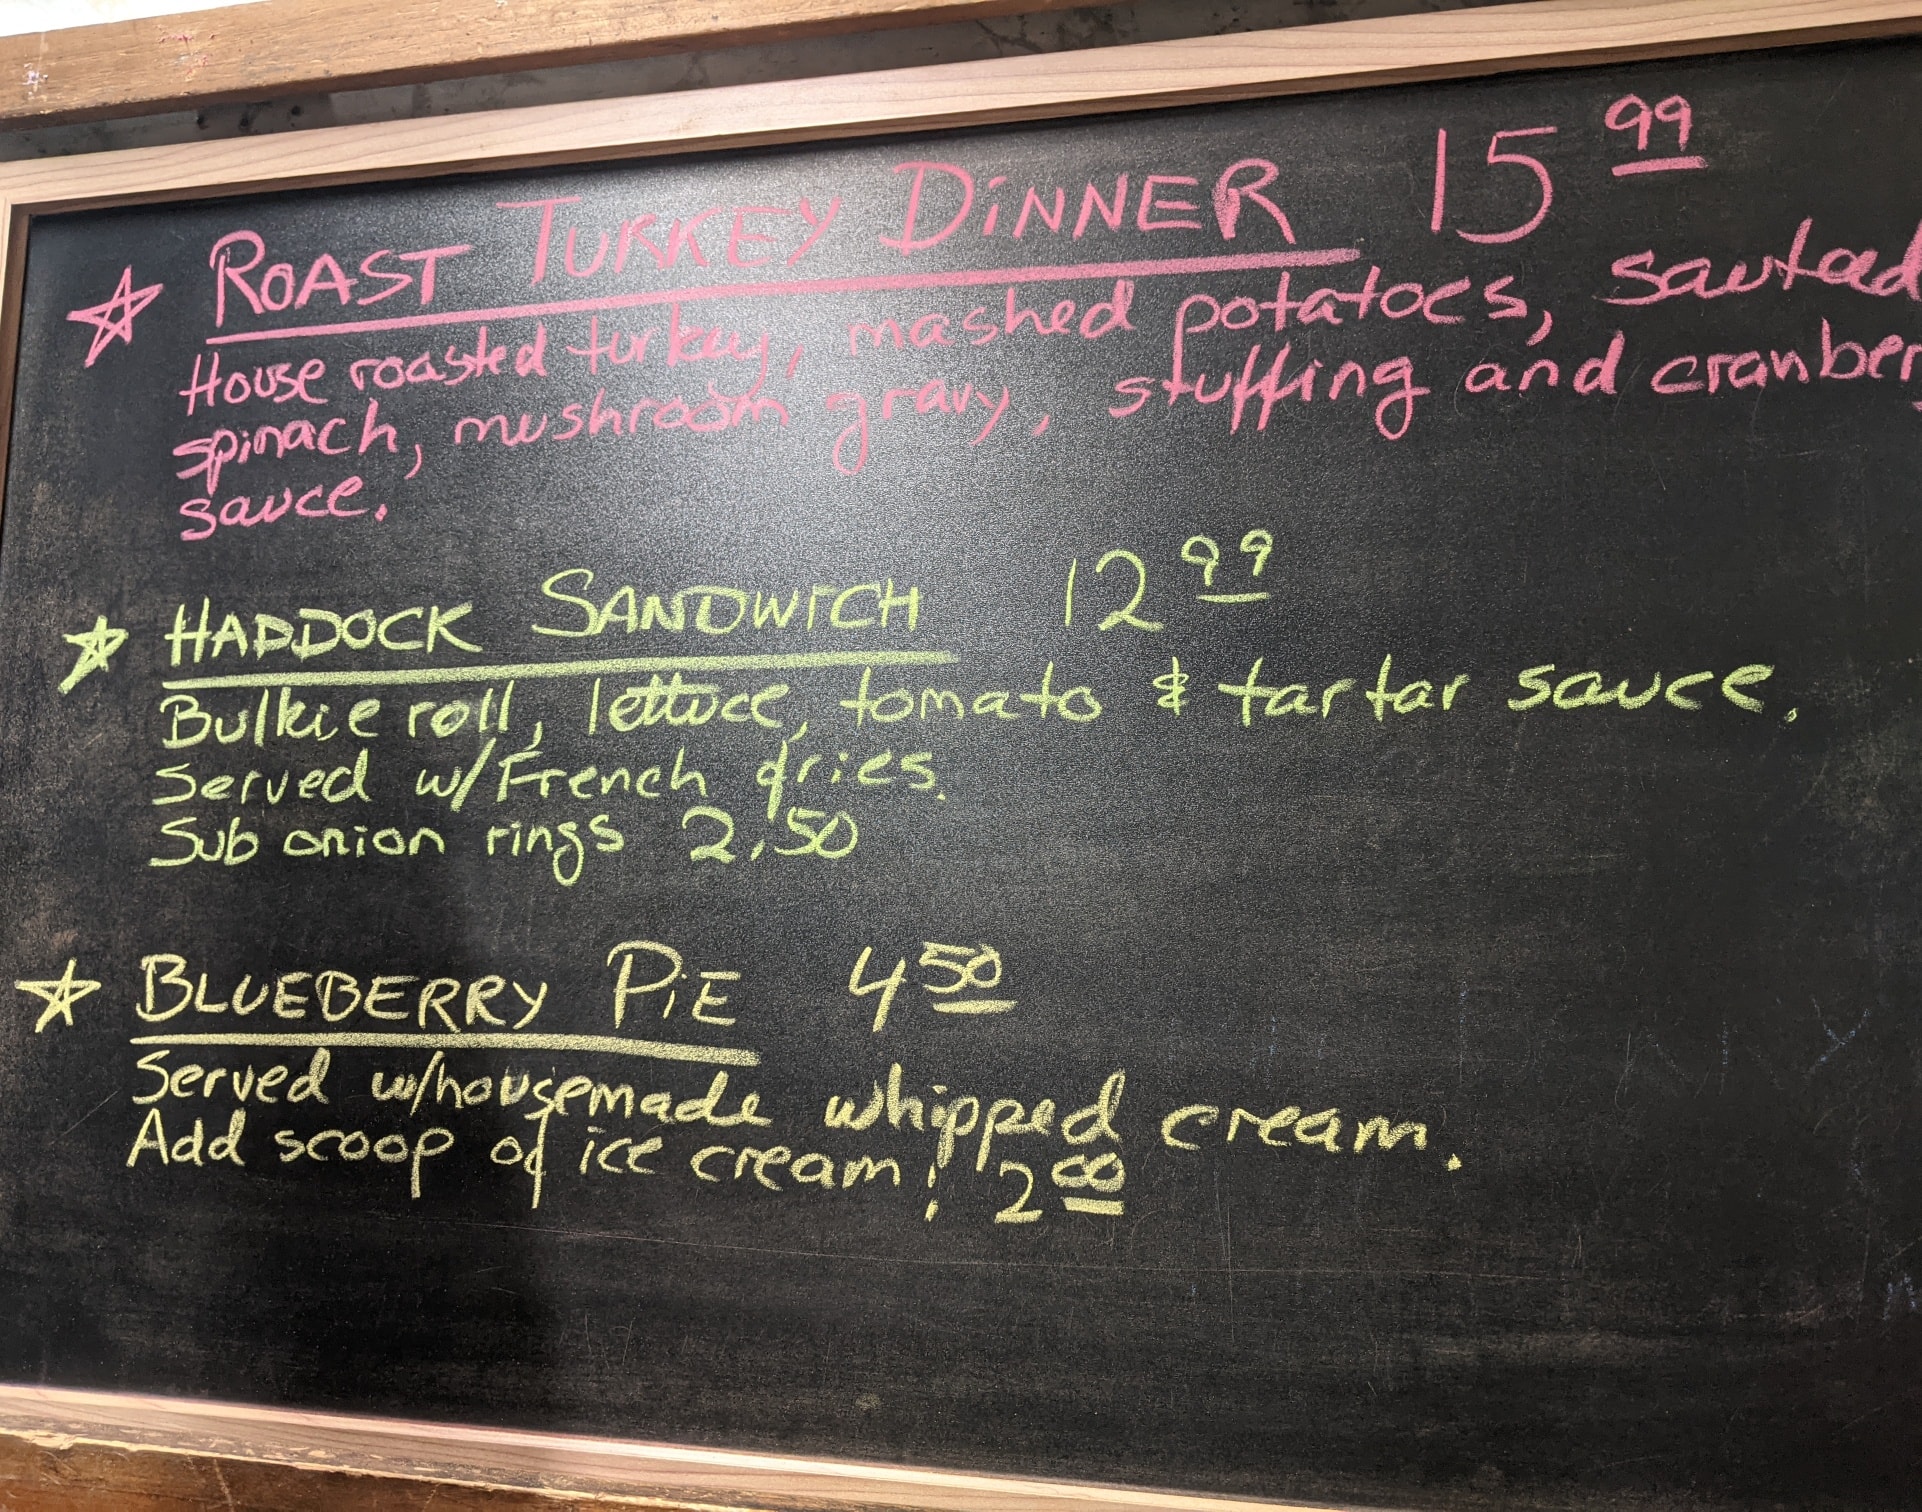 ROAST TURKEY DINNER 15 99
House roasted turkey, mashed potatoes, sauteed
spinach, mushroom gravy, stuffing and cranberry
sauce.
HADDOCK SANDWICH 12 99
Bulkie roll, lettuce, tomato & tartar sauce.
Served w/French fries.
Sub onion rings 2.50
BLUEBERRY PiE 4 50
Served w/housemade whipped cream.
Add scoop of ice cream: 2 00